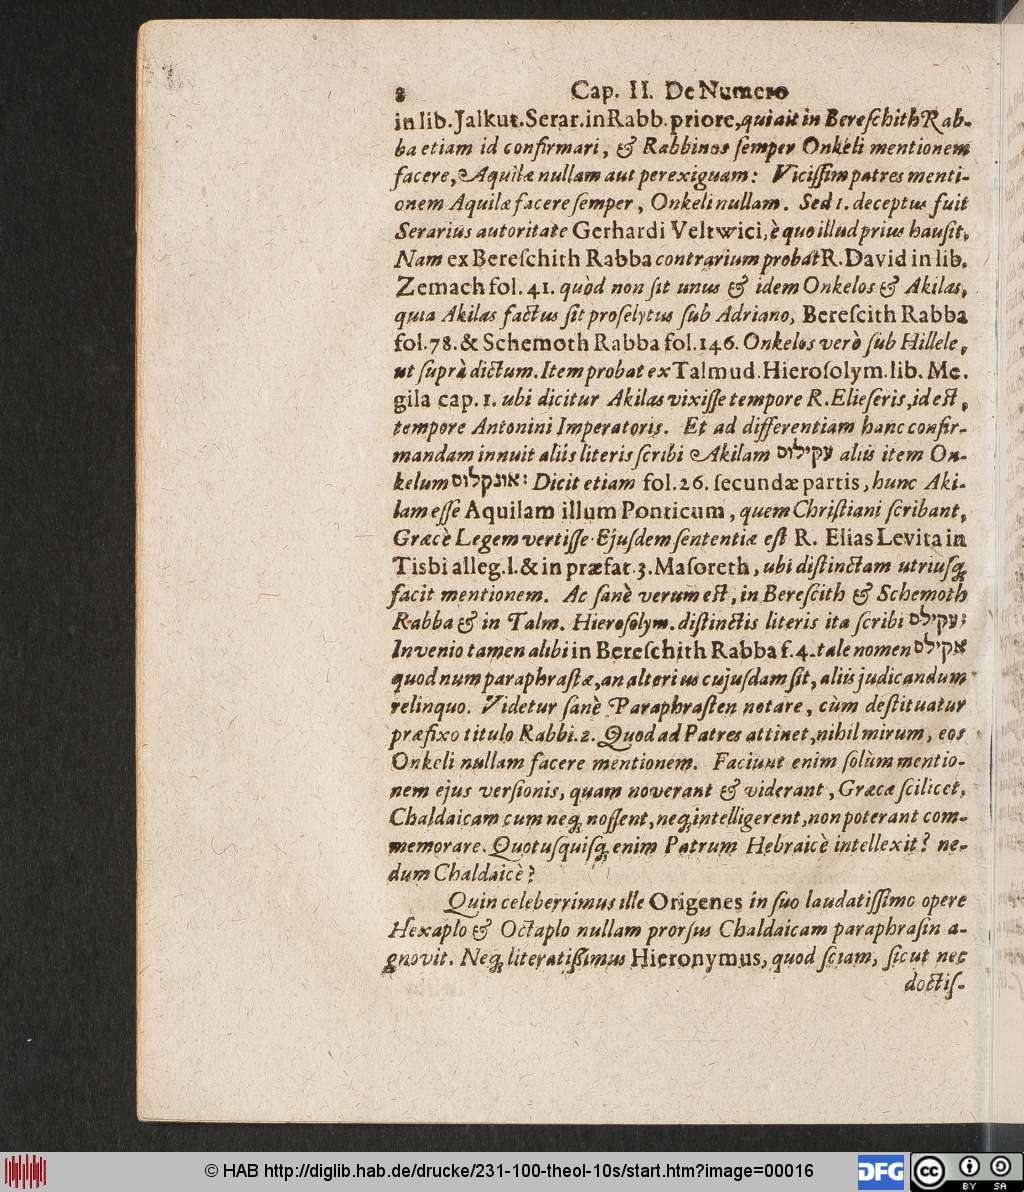 8 Cap. II. De Numero
in lib. Jalkut. Serar. in Rabb. priore, qui ait in Bereſchith Rab-
ba etiam id confirmari, & Rabbinos ſemper Onkeli mentionem
facere, Aquilæ nullam aut perexiguam: Viciſſim patres menti-
onem Aquilæ facere ſemper, Onkeli nullam. Sed 1. deceptus fuit
Serarius autoritate Gerhardi Veltwici, è quo illud prius hauſit.
Nam ex Bereſchith Rabba contrarium probat R. David in lib.
Zemach fol. 41. quòd non ſit unus & idem Onkelos & Akilas,
quia Akilas factus ſit proſelytus ſub Adriano, Bereſcith Rabba
fol. 78. & Schemoth Rabba fol. 146. Onkelos verò ſub Hillele,
ut ſuprà dictum. Item probat ex Talmud. Hieroſolym. lib. Me.
gila cap. 1. ubi dicitur Akilas vixiſſe tempore R. Elieſeris, id eſt,
tempore Antonini Imperatoris. Et ad differentiam hanc confir-
mandam innuit aliis literis ſcribi Akilam עקילוס aliis item On-
kelum אונקלוס: Dicit etiam fol. 26. ſecundæ partis, hunc Aki-
lam eſſe Aquilam illum Ponticum, quem Chriſtiani ſcribant,
Græcè Legem vertiſſe. Ejuſdem ſententiæ eſt R. Elias Levita in
Tisbi alleg. l. & in præfat. 3. Maſoreth, ubi diſtinctam utriuſq;
facit mentionem. Ac ſanè verum eſt, in Bereſcith & Schemoth
Rabba & in Talm. Hieroſolym. diſtinctis literis ita ſcribi עקילס:
Invenio tamen alibi in Bereſchith Rabba f. 4. tale nomen אקילס
quod num paraphraſtæ, an alterius cujuſdam ſit, aliis judicandum
relinquo. Videtur ſanè Paraphraſten notare, cùm deſtituatur
præfixo titulo Rabbi. 2. Quod ad Patres attinet, nihil mirum, eos
Onkeli nullam facere mentionem. Faciunt enim ſolùm mentio-
nem ejus verſionis, quam noverant & viderant, Græcæ ſcilicet,
Chaldaicam cum neq; noſſent, neq; intelligerent, non poterant com-
memorare. Quotuſquiſq; enim Patrum Hebraicè intellexit? ne-
dum Chaldaicè?
Quin celeberrimus ille Origenes in ſuo laudatiſſimo opere
Hexaplo & Octaplo nullam prorſus Chaldaicam paraphraſin a-
gnovit. Neq; literatiſſimus Hieronymus, quod ſciam, ſicut nec
doctiſ-
© HAB http://diglib.hab.de/drucke/231-100-theol-10s/start.htm?image=00016
DFG
cc BY SA